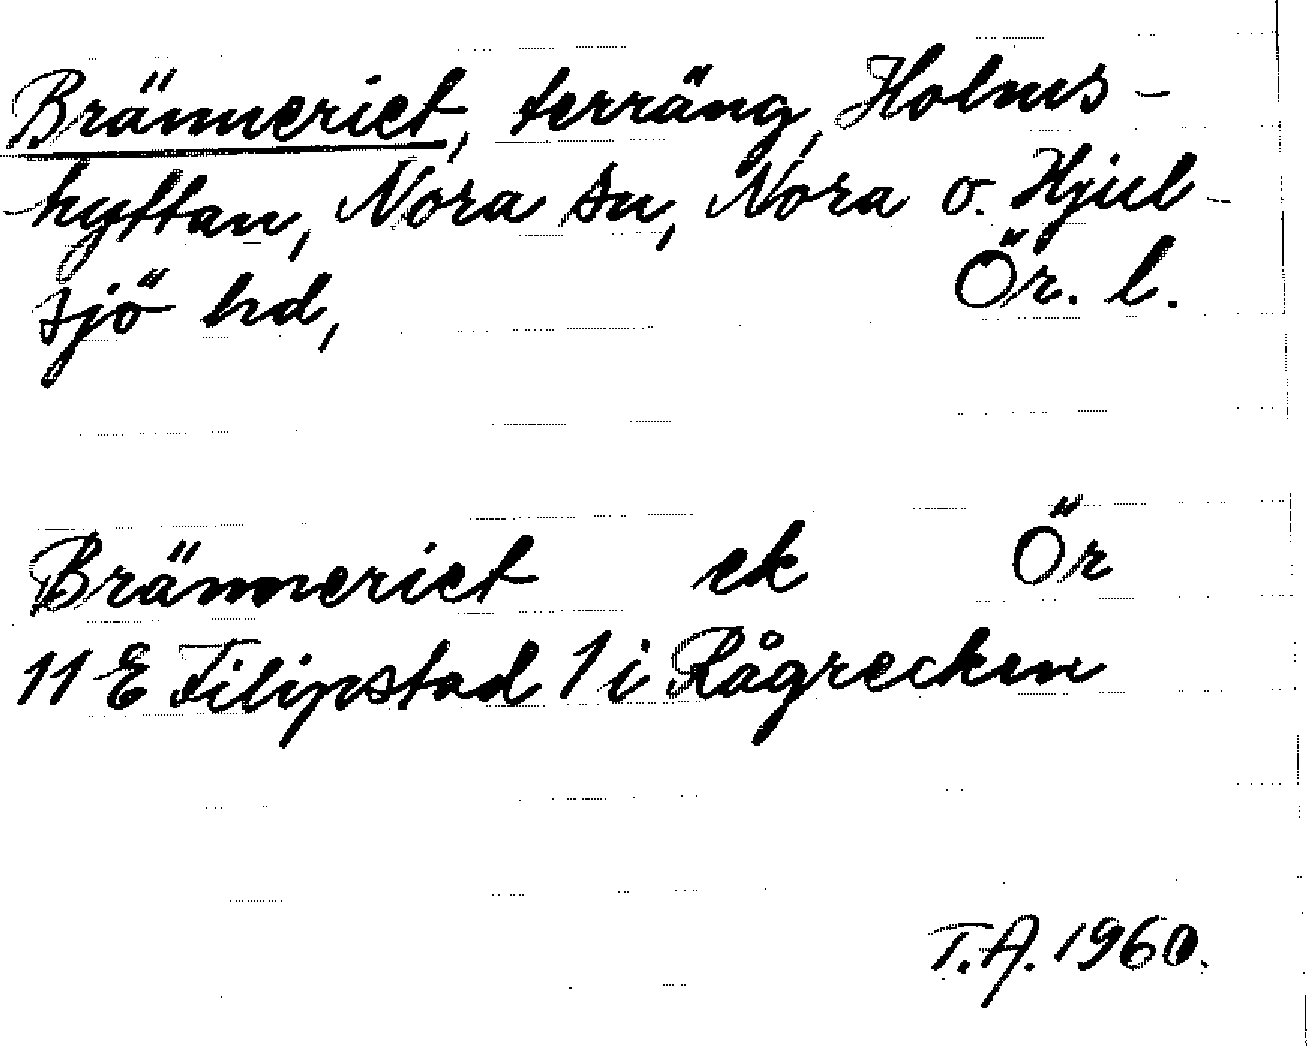 Bränneriet, terräng, Holms-
hyttan, Nora sn, Nora o. Hjul-
sjö hd, Ör. l.
Bränneriet ek Ör
11 E Filipstad 1 i Rågrecken
T.A. 1960.